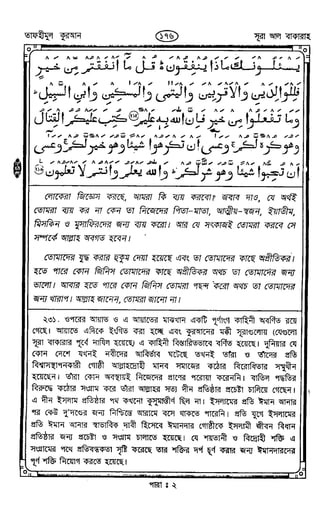 তাফহীমুল কুরআন
১৭৬
সূরা আল বাকারাহ
يَسْـَٔلُوْنَكَ مَاذَا يُنْفِقُوْنَ ۛ قُلْ مَآ اَنْفَقْتُمْ مِّنْ خَيْرٍ
فَلِلْوَالِدَيْنِ وَالْاَقْرَبِيْنَ وَالْيَتٰمٰى وَالْمَسٰكِيْنِ وَابْنِ السَّبِيْلِ ۛ
وَمَا تَفْعَلُوْا مِنْ خَيْرٍ فَاِنَّ اللّٰهَ بِهٖ عَلِيْمٌ ﴿٢١٥﴾ كُتِبَ عَلَيْكُمُ الْقِتَالُ
وَهُوَ كُرْهٌ لَّكُمْ ۚ وَعَسٰٓى اَنْ تَكْرَهُوْا شَيْئًا وَّهُوَ خَيْرٌ لَّكُمْ ۚ وَعَسٰٓى
اَنْ تُحِبُّوْا شَيْئًا وَّهُوَ شَرٌّ لَّكُمْ ۛ وَاللّٰهُ يَعْلَمُ وَاَنْتُمْ لَا تَعْلَمُوْنَ ﴿٢١٦﴾
লোকেরা জিজ্ঞেস করছে, আমরা কি ব্যয় করবো? জবাব দাও, যে অর্থই
তোমরা ব্যয় কর না কেন তা নিজেদের পিতা-মাতা, আত্মীয়-স্বজন, ইয়াতীম,
মিসকিন ও মুসাফিরদের জন্য ব্যয় করো। আর যে সৎকাজই তোমরা করবে সে
সম্পর্কে আল্লাহ অবগত হবেন।
তোমাদের যুদ্ধ করার হুকুম দেয়া হয়েছে এবং তা তোমাদের কাছে অপ্রীতিকর।
হতে পারে কোন জিনিস তোমাদের কাছে অপ্রীতিকর অথচ তা তোমাদের জন্য
ভালো। আবার হতে পারে কোন জিনিস তোমরা পছন্দ করো অথচ তা তোমাদের
জন্য খারাপ। আল্লাহ জানেন, তোমরা জানো না।
২৩১. ওপরের আয়াত ও এ আয়াতের মাঝখানে একটি পূর্ণাংগ কাহিনী অবর্ণিত রয়ে
গেছে। আয়াতে এদিকে ইংগিত করা হচ্ছে এবং কুরআনের মক্কী সূরাগুলোয় (যেগুলো
সূরা বাকারার পূর্বে নাযিল হয়েছে) এ কাহিনী বিস্তারিতভাবে বর্ণিত হয়েছে। দুনিয়ার যে
কোন দেশে যখনই নবীদের আবির্ভাব ঘটেছে তখনই তাঁরা ও তাঁদের প্রতি
বিশ্বাসস্থাপনকারী গোষ্ঠী আল্লাহদ্রোহী মানব সমাজের কঠোর বিরোধিতার সম্মুখীন
হয়েছেন। তাঁরা কোন অবস্থায়ই নিজেদের প্রাণের পরোয়া করেননি। বাতিল পদ্ধতির
বিরুদ্ধে কঠোর সংগ্রাম করে তাঁরা আল্লাহর সত্য দীন প্রতিষ্ঠার প্রচেষ্টা চালিয়ে গেছেন।
এ দীন ইসলাম প্রতিষ্ঠার পথ কখনো কুসুমাস্তীর্ণ ছিল না। ইসলামের প্রতি ঈমান আনার
পর কেউ দু'দণ্ডের জন্য নিশ্চিন্তে আরামে বসে থাকতে পারেনি। প্রতি যুগে ইসলামের
প্রতি ঈমান আনার স্বাভাবিক দাবী হিসেবে ঈমানদার গোষ্ঠীকে ইসলামী জীবন বিধান
প্রতিষ্ঠার জন্য প্রচেষ্টা ও সংগ্রাম চালাতে হয়েছে। যে শয়তানী ও বিদ্রোহী শক্তি এ
সংগ্রামের পথে প্রতিবন্ধকতা সৃষ্টি করেছে তার শক্তির দর্প চূর্ণ করার জন্য ঈমানদারদের
পূর্ণ শক্তি নিয়োগ করতে হয়েছে।
পারা : ২